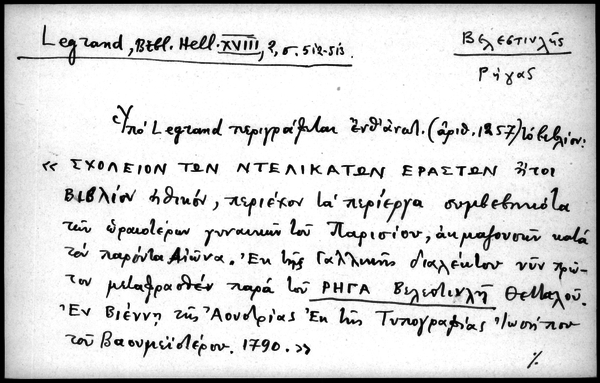 Legrand, Βιβλ. Hell. XVIII, 2, σ. 512-513.
Βελεστινλῆς
Ρήγας
Ὑπὸ Legrand περιγράφεται ἐνθ' ἀνωτ. (ἀριθ. 1257) τὸ βιβλίον:
« ΣΧΟΛΕΙΟΝ ΤΩΝ ΝΤΕΛΙΚΑΤΩΝ ΕΡΑΣΤΩΝ ἤτοι
ΒΙΒΛΙΟΝ ἠθικόν, περιέχον τὰ περίεργα συμβεβηκότα
τῶν ὡραιοτέρων γυναικῶν τοῦ Παρισίου, ἀκμαζουσῶν κατὰ
τὸν παρόντα Αἰῶνα. Ἐκ τῆς Γαλλικῆς διαλέκτου νῦν πρῶ-
τον μεταφρασθὲν παρὰ τοῦ ΡΗΓΑ Βελεστινλῆ Θετταλοῦ.
Ἐν Βιέννῃ τῆς Ἀουστρίας Ἐκ τῆς Τυπογραφίας Ἰωσήπου
τοῦ Βαουμεϊστέρου. 1790. »